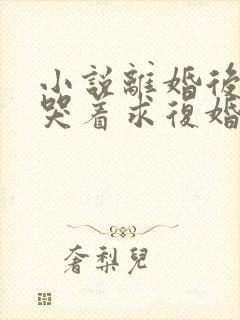 小說離婚後
哭着求復婚
奢梨兒